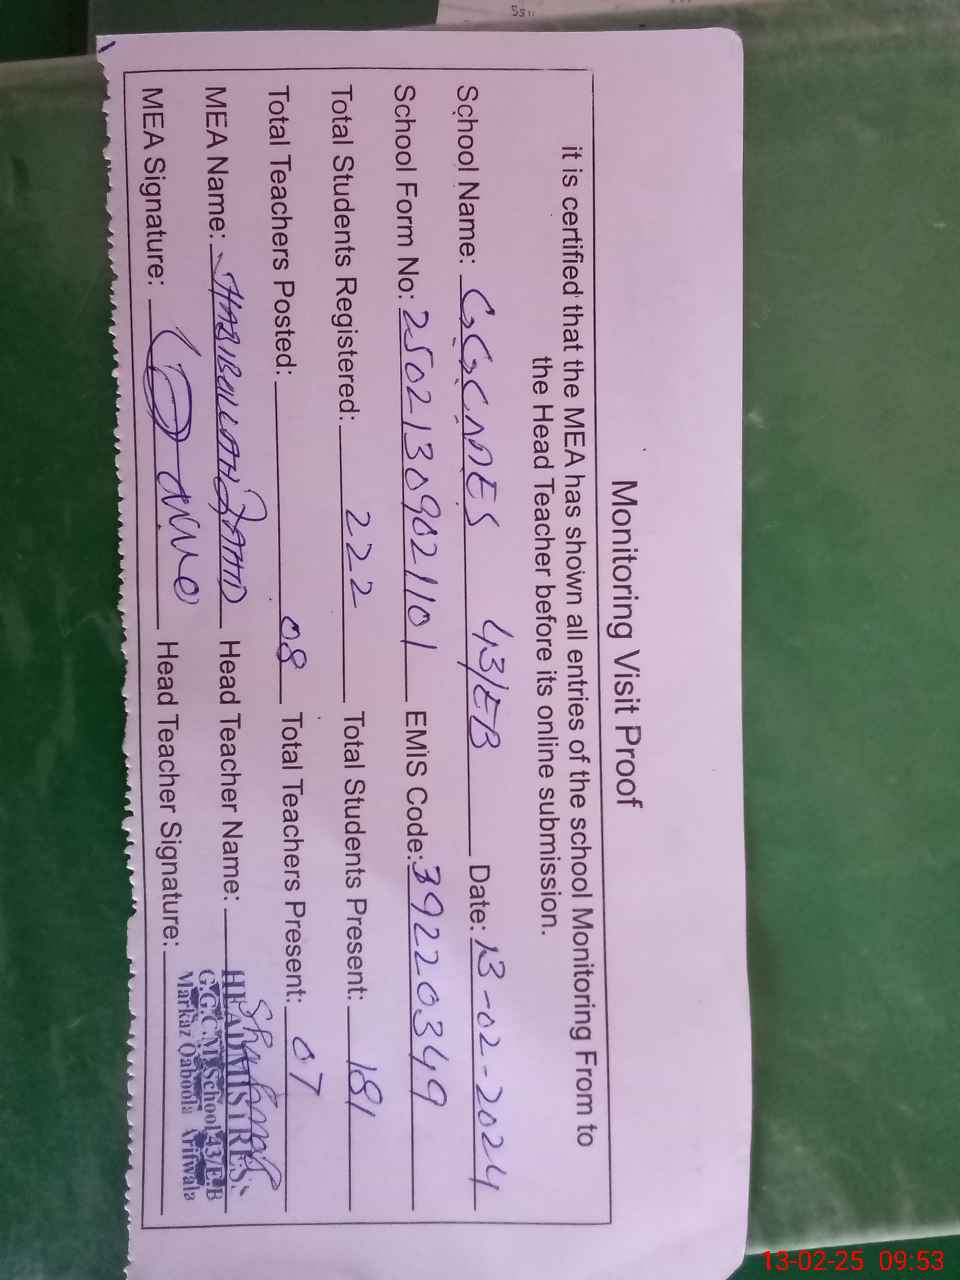 Monitoring Visit Proof
it is certified that the MEA has shown all entries of the school Monitoring From to
the Head Teacher before its online submission.
School Name: G.G.C.M.E.S 43/EB Date: 13-02-2024
School Form No: 25021309021101 EMIS Code: 39220349
Total Students Registered: 222 Total Students Present: 181
Total Teachers Posted: 08 Total Teachers Present: 07
MEA Name: HABIBULLAH ZAHID Head Teacher Name:
MEA Signature: Head Teacher Signature:
HEADMISTRES
G.G.C.M. School 43/E.B
Markaz Qaboola Arifwala
13-02-25 09:53